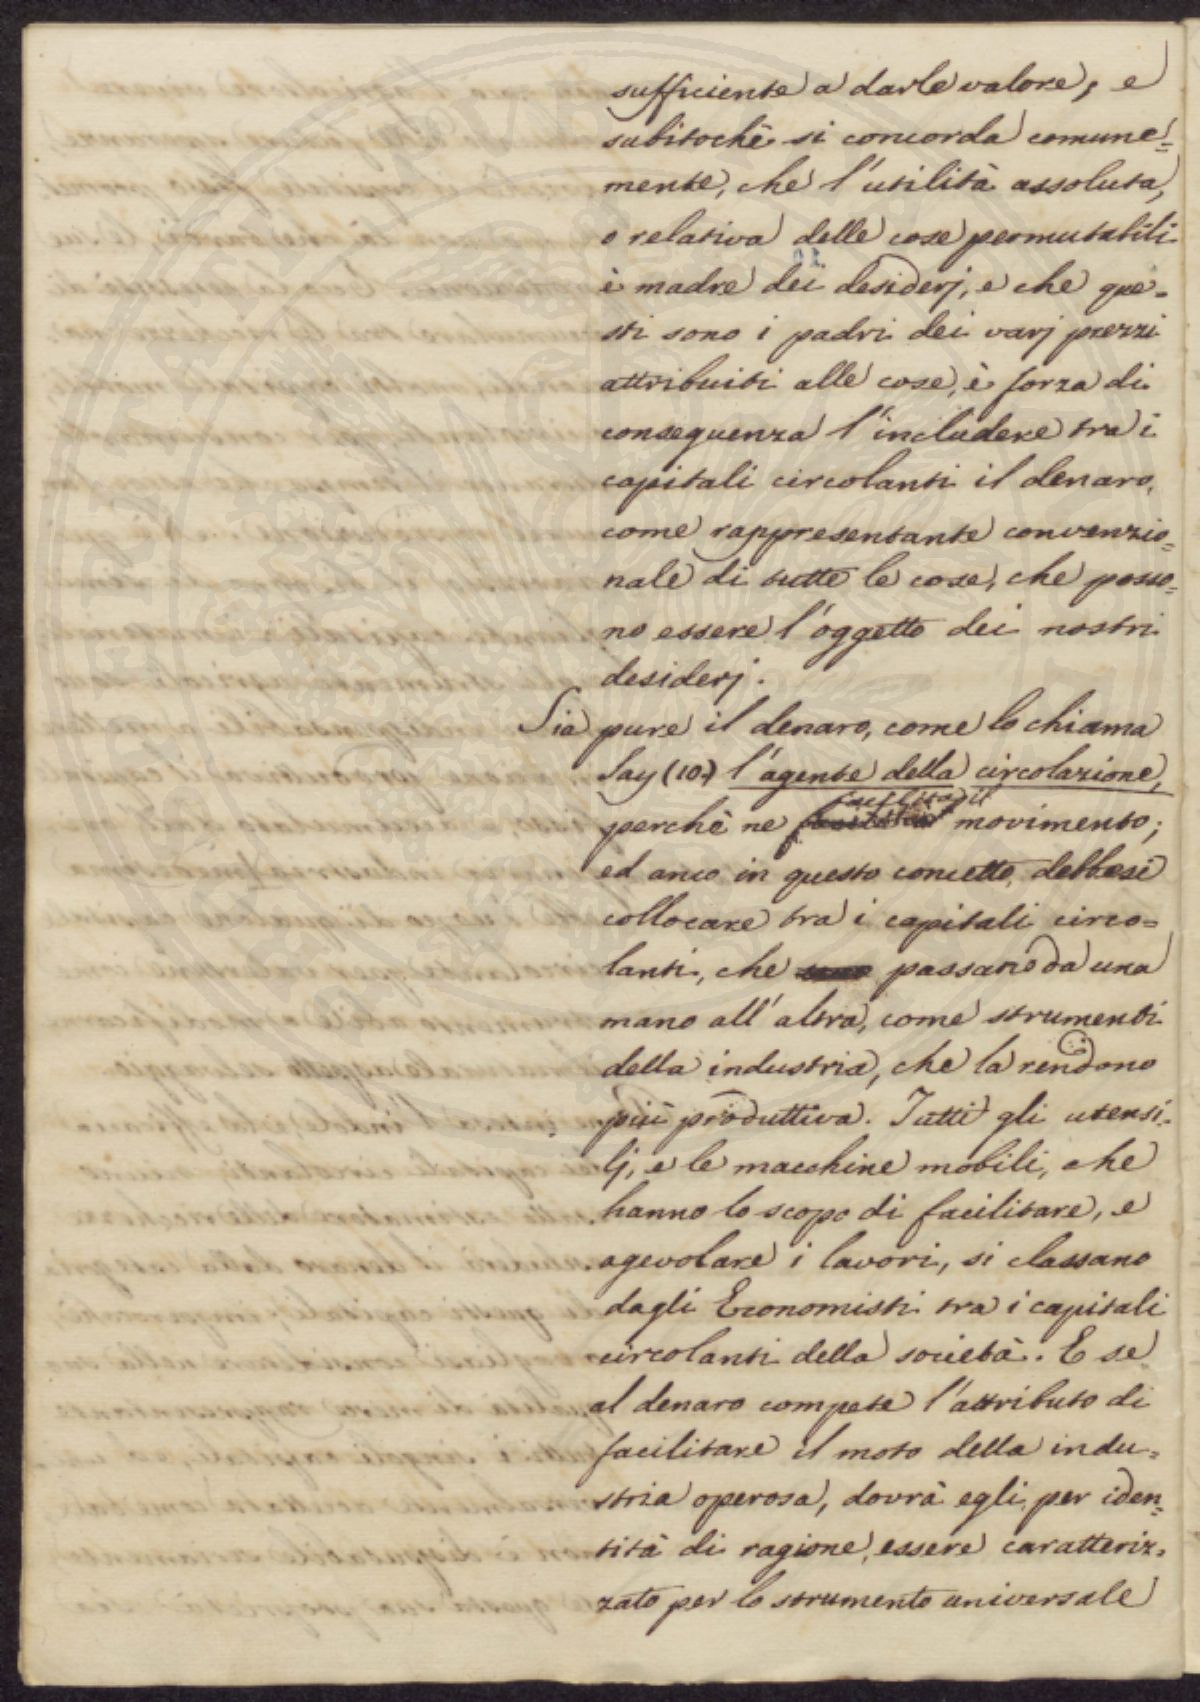 sufficiente a darle valore, e
subitochè si concorda comune=
mente, che l'utilità assoluta,
o relativa delle cose permutabili
è madre dei desiderj, e che que=
sti sono i padri dei varj prezzi
attribuiti alle cose, è forza di
conseguenza l'includere tra i
capitali circolanti il denaro,
come rappresentante convenzio=
nale di tutte le cose, che posso=
no essere l'oggetto dei nostri
desiderj.
Sia pure il denaro, come lo chiama
Say (10.) l'agente della circolazione,
perchè ne facilita il movimento;
ed anco in questo concetto debbesi
collocare tra i capitali circo=
lanti, che passano da una
mano all'altra, come strumenti
della industria, che la rendono
più produttiva. Tutti gli utensi=
lj, e le macchine mobili, che
hanno lo scopo di facilitare, e
agevolare i lavori, si classano
dagli Economisti tra i capitali
circolanti della società. E se
al denaro compete l'attributo di
facilitare il moto della indu=
stria operosa, dovrà egli per iden=
tità di ragione, essere caratteriz=
zato per lo strumento universale